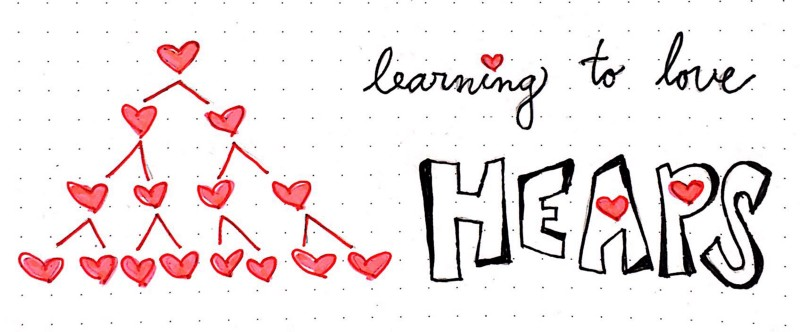 learning to love
HEAPS